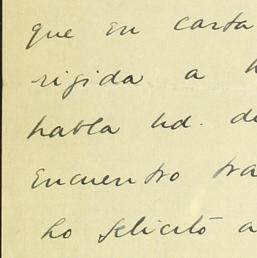 que en carta
rigida a
habla Ud. d
Encuentro tra
ho felicitó a